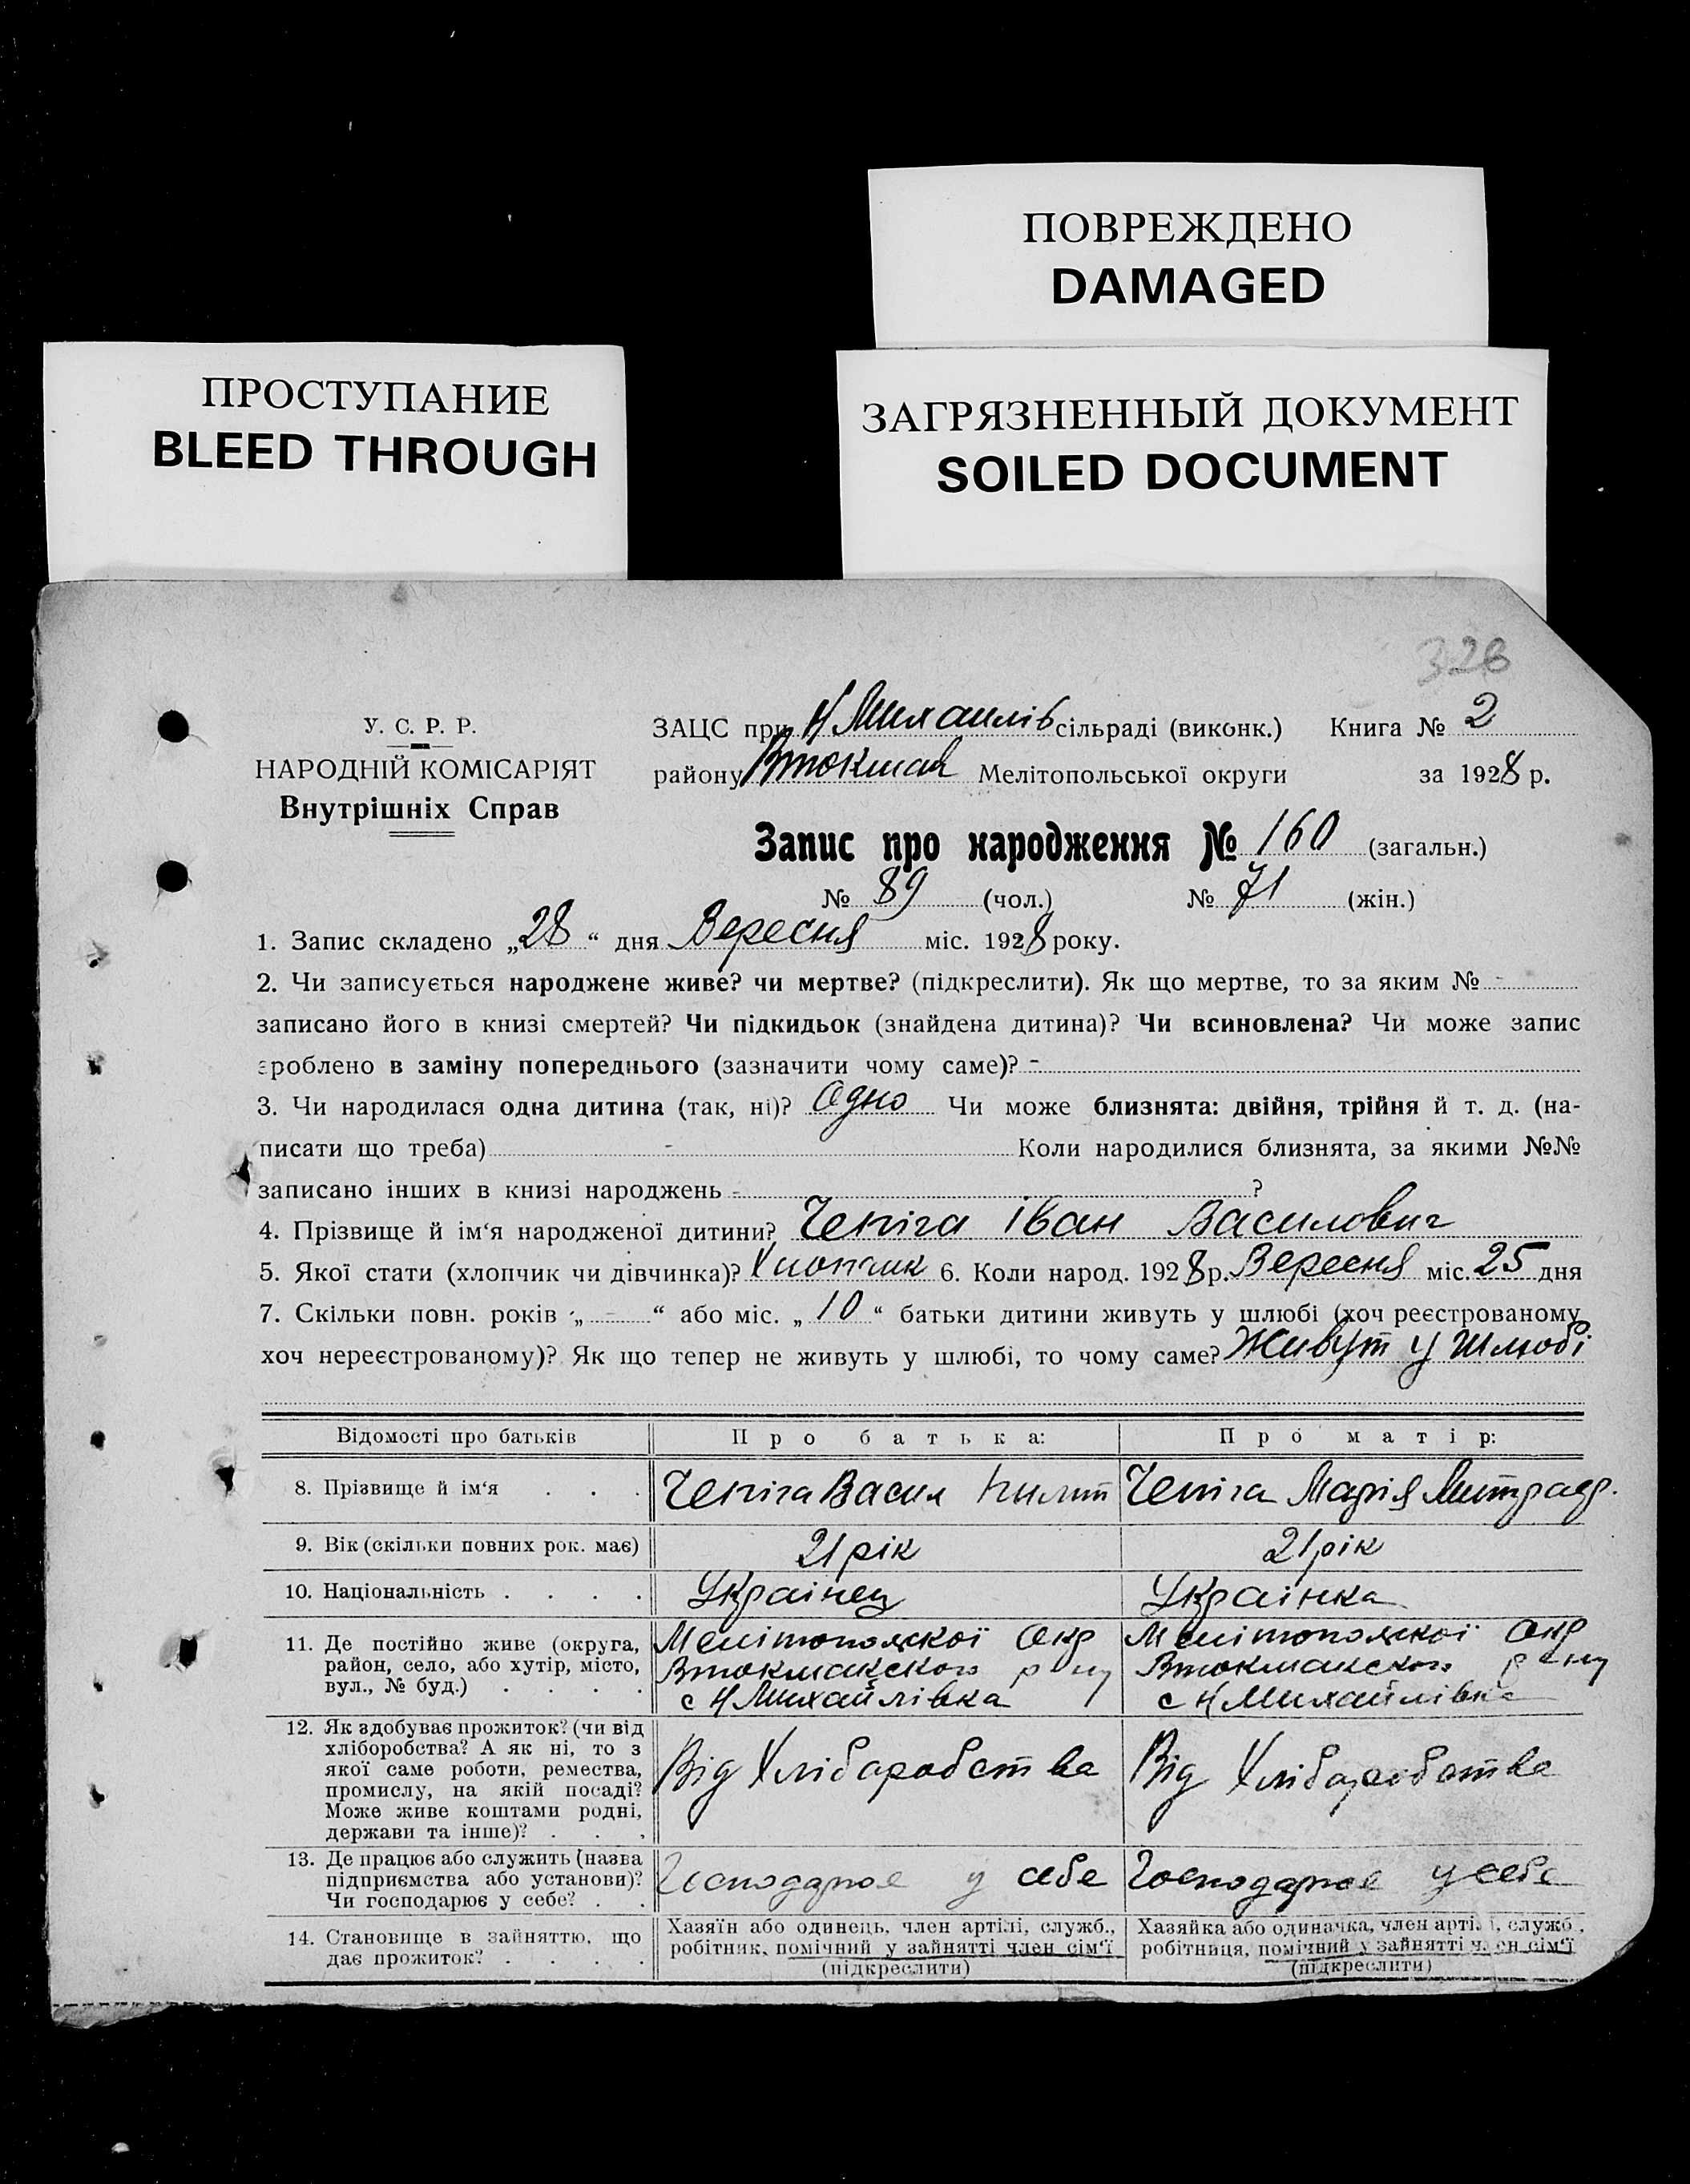 ПОВРЕЖДЕНО
DAMAGED
ПРОСТУПАНИЕ
BLEED THROUGH
ЗАГРЯЗНЕННЫЙ ДОКУМЕНТ
SOILED DOCUMENT
328
У. С. Р. Р.
НАРОДНІЙ КОМІСАРІЯТ
Внутрішніх Справ
ЗАЦС при Н Михаилів сільраді (виконк.) Книга № 2
району Втокмак Мелітопольської округи за 1928 р.
Запис про народження № 160 (загальн.)
№ 89 (чол.) № 71 (жін.)
1. Запис складено „28“ дня Вересня міс. 1928 року.
2. Чи записується народжене живе? чи мертве? (підкреслити). Як що мертве, то за яким № -
записано його в книзі смертей? Чи підкидьок (знайдена дитина)? Чи всиновлена? Чи може запис
зроблено в заміну попереднього (зазначити чому саме)? -
3. Чи народилася одна дитина (так, ні)? Одно Чи може близнята: двійня, трійня й т. д. (на-
писати що треба) - Коли народилися близнята, за якими №№
записано інших в книзі народжень - ?
4. Прізвище й ім‘я народженої дитини? Чепіга Іван Василович
5. Якої стати (хлопчик чи дівчинка)? Хлопчик 6. Коли народ. 1928 р. Вересня міс. 25 дня
7. Скільки повн. років „ - “ або міс. „ 10 “ батьки дитини живуть у шлюбі (хоч реєстрованому
хоч нереєстрованому)? Як що тепер не живуть у шлюбі, то чому саме? Живут у Шлюбі
Відомості про батьків Про батька: Про матір:
8. Прізвище й ім‘я . . . Чепіга Васил Чепіга Марія Митрадр.
9. Вік (скільки повних рок. має) 21 рік 21 рік
10. Національність . . . . Украінец Украінка
11. Де постійно живе (округа, Мелітополскої Окр Мелітополскої Окр
район, село, або хутір, місто, Втокмакского р-ну Втокмакского р-ну
вул., № буд.) . . . . с Н Михайлівка с Н Михайлівка
12. Як здобуває прожиток? (чи від
хліборобства? А як ні, то з
якої саме роботи, ремества, Від Хлібаробства Від Хлібаробства
промислу, на якій посаді?
Може живе коштами родні,
держави та інше)? . . .
13. Де працює або служить (назва
підприємства або установи)? Господарює у себе Господарює у себе
Чи господарює у себе? . .
14. Становище в зайняттю, що Хазяїн або одинець, член артілі, служб., Хазяйка або одиначка, член артілі, служб.,
дає прожиток? . . . . робітник, помічний у зайнятті член сім‘ї робітниця, помічний у зайнятті член сім‘ї
(підкреслити) (підкреслити)